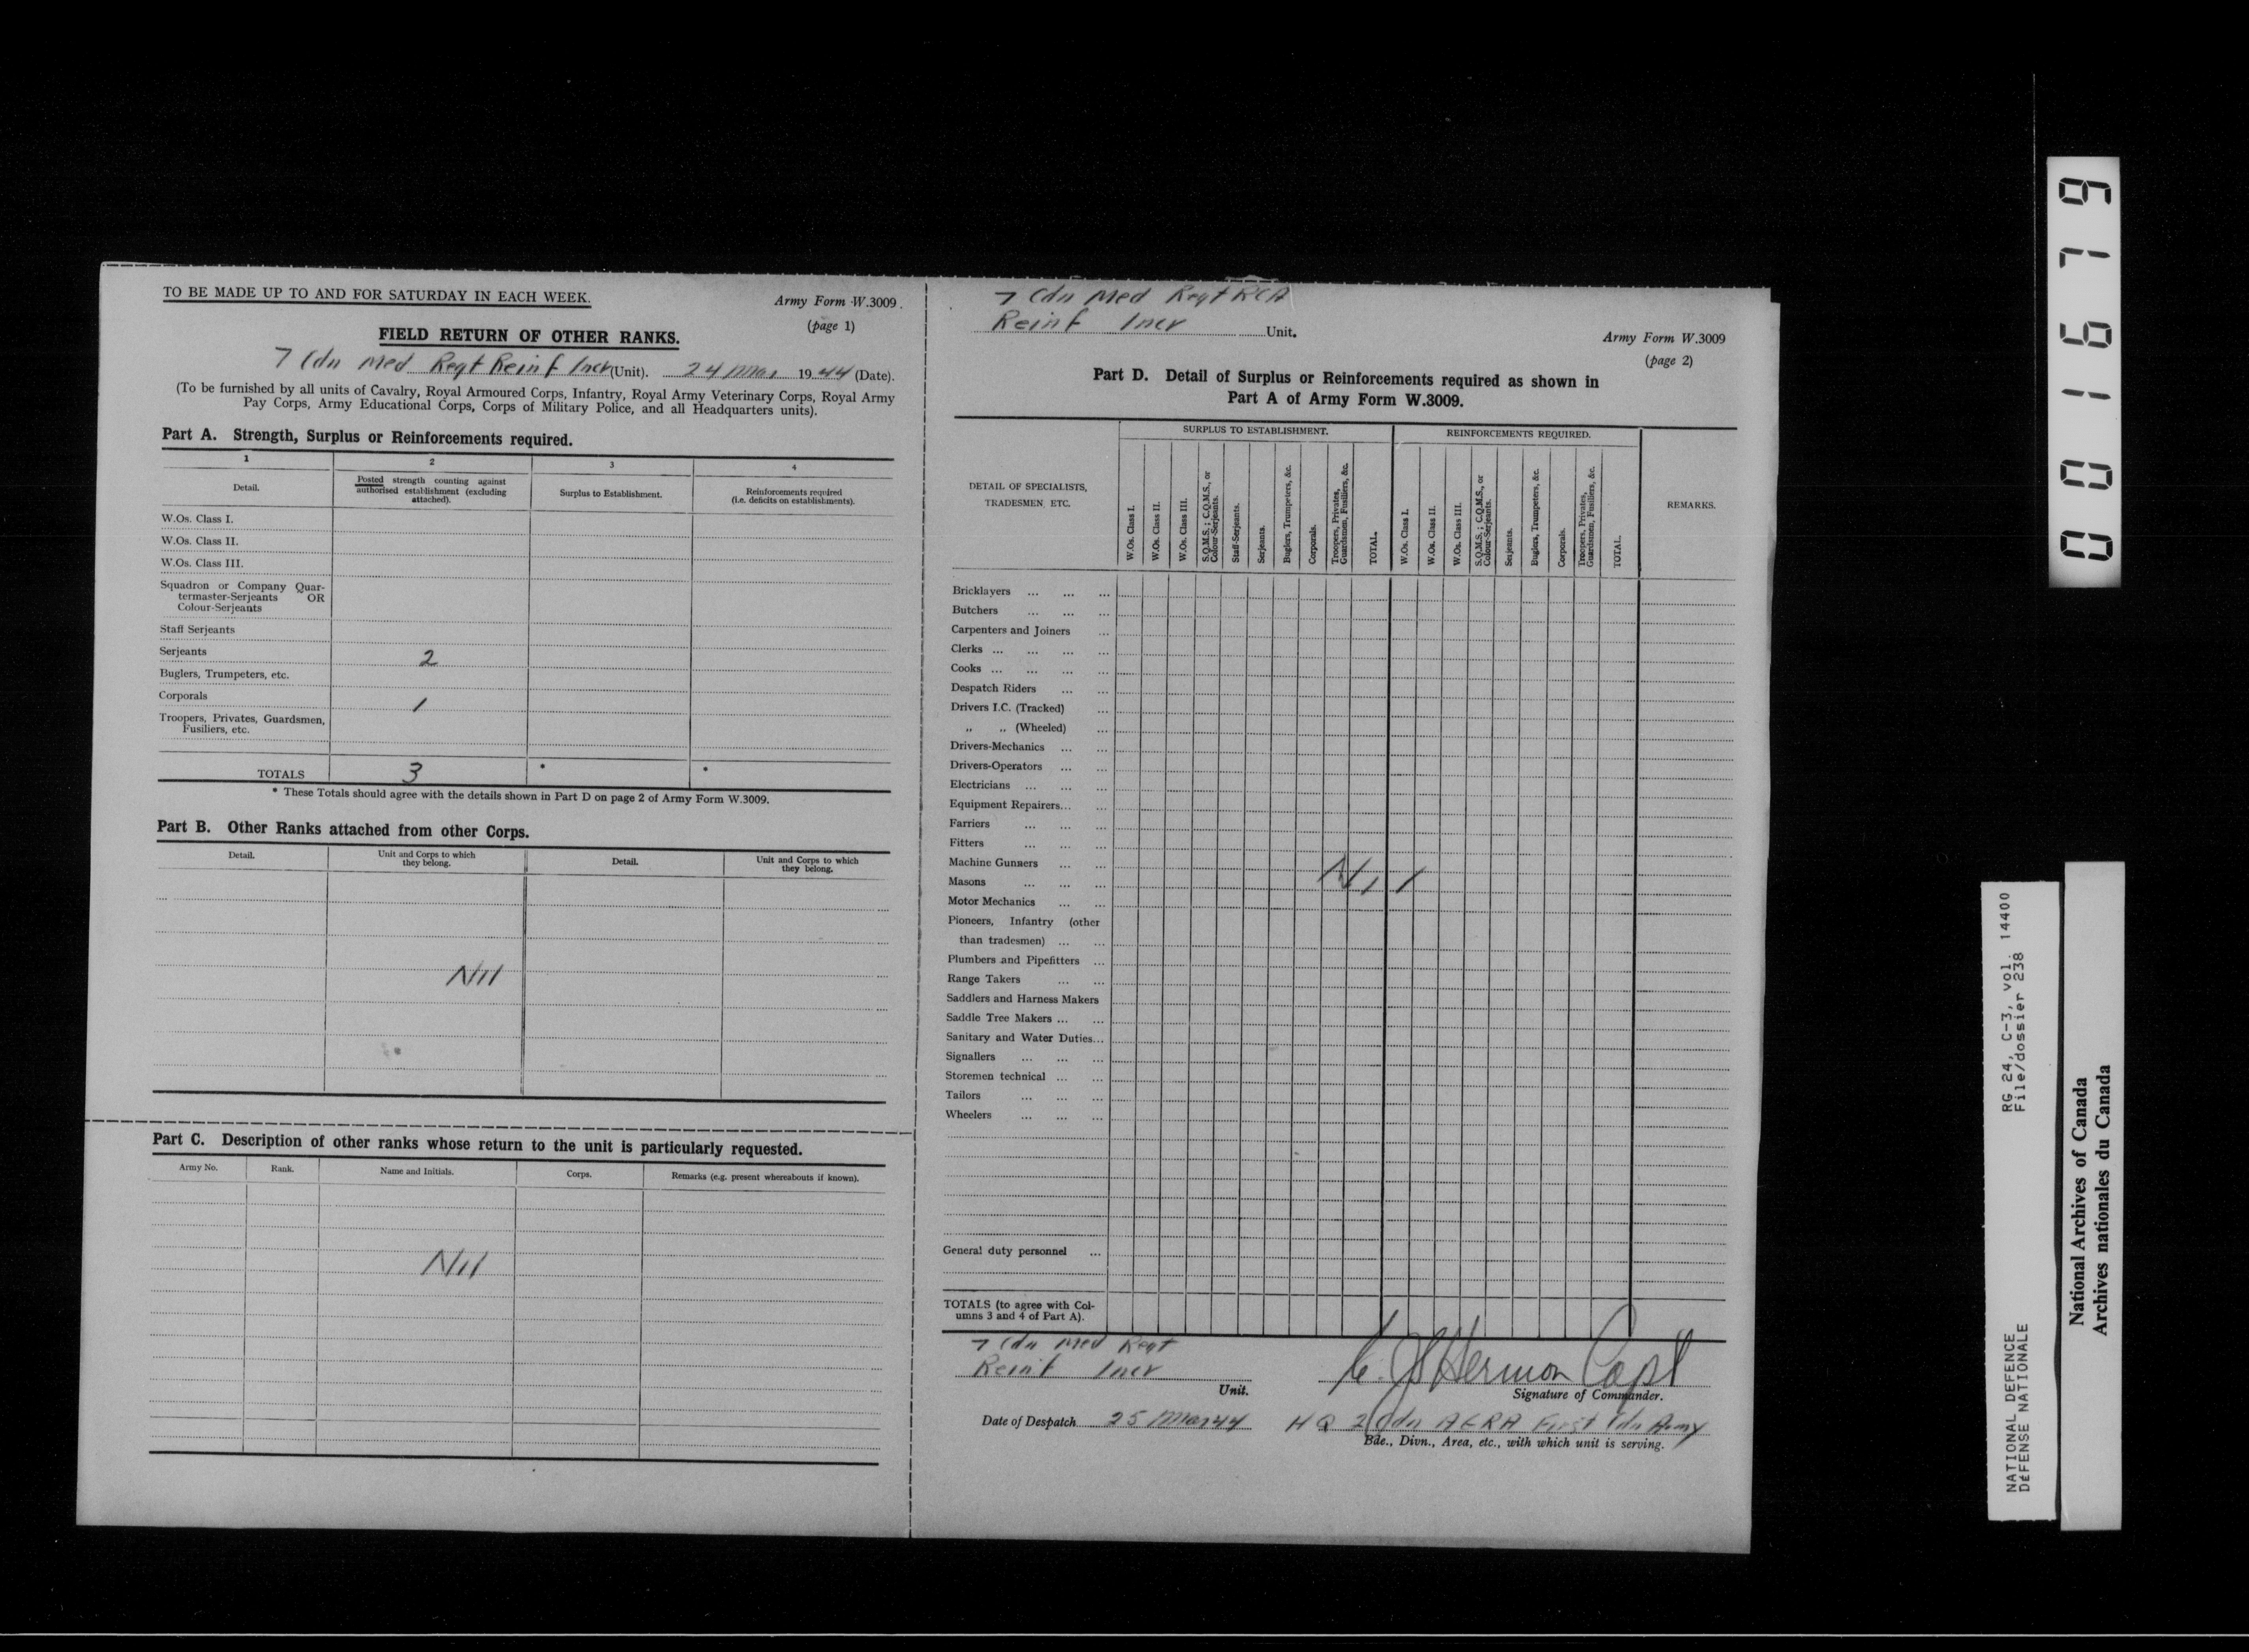 TO BE MADE UP TO AND FOR SATURDAY IN EACH WEEK.
Army Form W.3009.
(page 1)
FIELD RETURN OF OTHER RANKS.
7 Cdn Med Regt Reinf Incr (Unit). 24 Mar 1944 (Date).
(To be furnished by all units of Cavalry, Royal Armoured Corps, Infantry, Royal Army Veterinary Corps, Royal Army
Pay Corps, Army Educational Corps, Corps of Military Police, and all Headquarters units).
Part A. Strength, Surplus or Reinforcements required.
1 2 3 4
Detail.
Posted strength counting against
authorised establishment (excluding
attached).
Surplus to Establishment.
Reinforcements required
(i.e. deficits on establishments).
W.Os. Class I.
W.Os. Class II.
W.Os. Class III.
Squadron or Company Quar-
termaster-Serjeants OR
Colour-Serjeants
Staff Serjeants
Serjeants 2
Buglers, Trumpeters, etc.
Corporals 1
Troopers, Privates, Guardsmen,
Fusiliers, etc.
TOTALS 3 * *
* These Totals should agree with the details shown in Part D on page 2 of Army Form W.3009.
Part B. Other Ranks attached from other Corps.
Detail.
Unit and Corps to which
they belong.
Detail.
Unit and Corps to which
they belong.
Nil
Part C. Description of other ranks whose return to the unit is particularly requested.
Army No. Rank. Name and Initials. Corps. Remarks (e.g. present whereabouts if known).
Nil
7 Cdn Med Regt RCA
Reinf Incr Unit.
Army Form W.3009
(page 2)
Part D. Detail of Surplus or Reinforcements required as shown in
Part A of Army Form W.3009.
DETAIL OF SPECIALISTS,
TRADESMEN, ETC.
SURPLUS TO ESTABLISHMENT.
W.Os. Class I.
W.Os. Class II.
W.Os. Class III.
S.Q.M.S.; C.Q.M.S., or
Colour-Serjeants.
Staff-Serjeants.
Serjeants.
Buglers, Trumpeters, &c.
Corporals.
Troopers, Privates,
Guardsmen, Fusiliers, &c.
TOTAL.
REINFORCEMENTS REQUIRED.
W.Os. Class I.
W.Os. Class II.
W.Os. Class III.
S.Q.M.S.; C.Q.M.S., or
Colour-Serjeants.
Serjeants.
Buglers, Trumpeters, &c.
Corporals.
Troopers, Privates,
Guardsmen, Fusiliers, &c.
TOTAL.
REMARKS.
Bricklayers ... ... ...
Butchers ... ... ...
Carpenters and Joiners ...
Clerks ... ... ... ...
Cooks ... ... ... ...
Despatch Riders ... ...
Drivers I.C. (Tracked) ...
„ „ (Wheeled) ...
Drivers-Mechanics ... ...
Drivers-Operators ... ...
Electricians ... ... ...
Equipment Repairers... ...
Farriers ... ... ...
Fitters ... ... ...
Machine Gunners ... ...
Nil
Masons ... ... ...
Motor Mechanics ... ...
Pioneers, Infantry (other
than tradesmen) ... ...
Plumbers and Pipefitters ...
Range Takers ... ...
Saddlers and Harness Makers
Saddle Tree Makers ... ...
Sanitary and Water Duties...
Signallers ... ... ...
Storemen technical ... ...
Tailors ... ... ...
Wheelers ... ... ...
General duty personnel ...
TOTALS (to agree with Col-
umns 3 and 4 of Part A).
7 Cdn Med Regt
Reinf Incr
Unit.
Hermon Capt
Signature of Commander.
Date of Despatch 25 Mar 44
HQ 2 Cdn AGRA First Cdn Army
Bde., Divn., Area, etc., with which unit is serving.
001679
NATIONAL DEFENCE RG 24, C-3, vol. 14400
DÉFENSE NATIONALE File/dossier 238
National Archives of Canada
Archives nationales du Canada